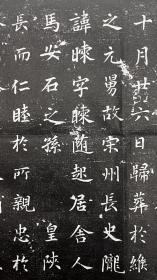 十月廿六日歸葬於絳
之元舅故宗州長史隴
諱暕字暕随起居舍人
馬安石之孫 皇陝
長而仁睦於所親忠於